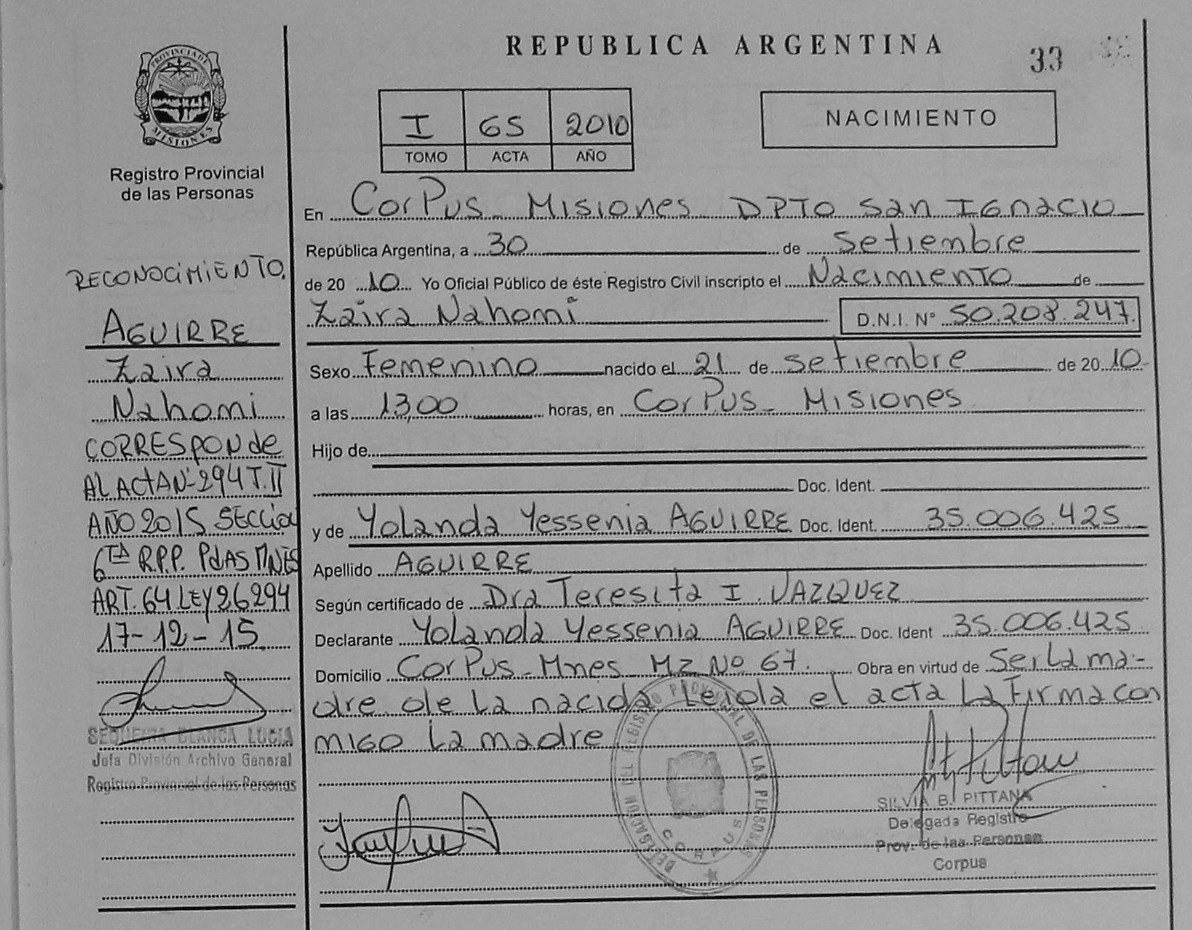 REPUBLICA ARGENTINA
33
PROVINCIA DE MISIONES
Registro Provincial
de las Personas
I 65 2010
TOMO ACTA AÑO
NACIMIENTO
RECONOCIMIENTO.
AGUIRRE
Zaira
Nahomi
CORRESPONde
AL ACTA Nº 294 T.II
AÑO 2015 SECCION
6TA R.P.P. PdAS MNES
ART. 64 LEY 26294
17-12-15
SEQUEIRA BLANCA LUCIA
Jefa División Archivo General
Registro Provincial de las Personas
En CorPus - Misiones - DPTO San Ignacio
República Argentina, a 30 de Setiembre
de 20 10 Yo Oficial Público de éste Registro Civil inscripto el Nacimiento de
Zaira Nahomi D.N.I. Nº 50.208.247.
Sexo Femenino nacido el 21 de Setiembre de 20 10
a las 13,00 horas, en CorPus - Misiones
Hijo de
Doc. Ident.
y de Yolanda Yessenia AGUIRRE Doc. Ident. 35.006.425
Apellido AGUIRRE
Según certificado de Dra Teresita I. VAZQUEZ
Declarante Yolanda Yessenia AGUIRRE Doc. Ident 35.006.425
Domicilio CorPus - Mnes Mz Nº 67. Obra en virtud de Ser La ma-
dre de La nacida Leida el acta La Firma con
migo La madre
DELEGACION DEL REGISTRO PROVINCIAL DE LAS PERSONAS
CORPUS
SILVIA B. PITTANA
Delegada Registro
Prov. de las Personas
Corpus